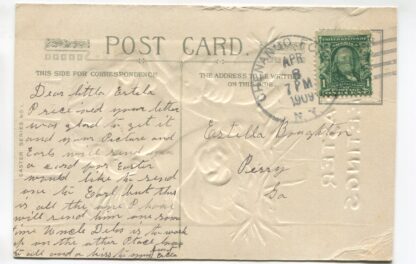 POST CARD.
THIS SIDE FOR CORRESPONDENCE
THE ADDRESS TO BE WRITTEN
ON THIS SIDE.
EASTER SERIES NO.
APR
8
7 PM
1909
N.Y.
Dear little Estela
I recieved your letter
was glad to get it
and your Picture and
Earls will send you
a card for Easter
would like to send
one to Earl but this
is all the one I have
will send him one some
time Uncle Delos is to work
up on the other Place
to all and a kiss to
Estella
Perry
Ga
GREETINGS
EASTER